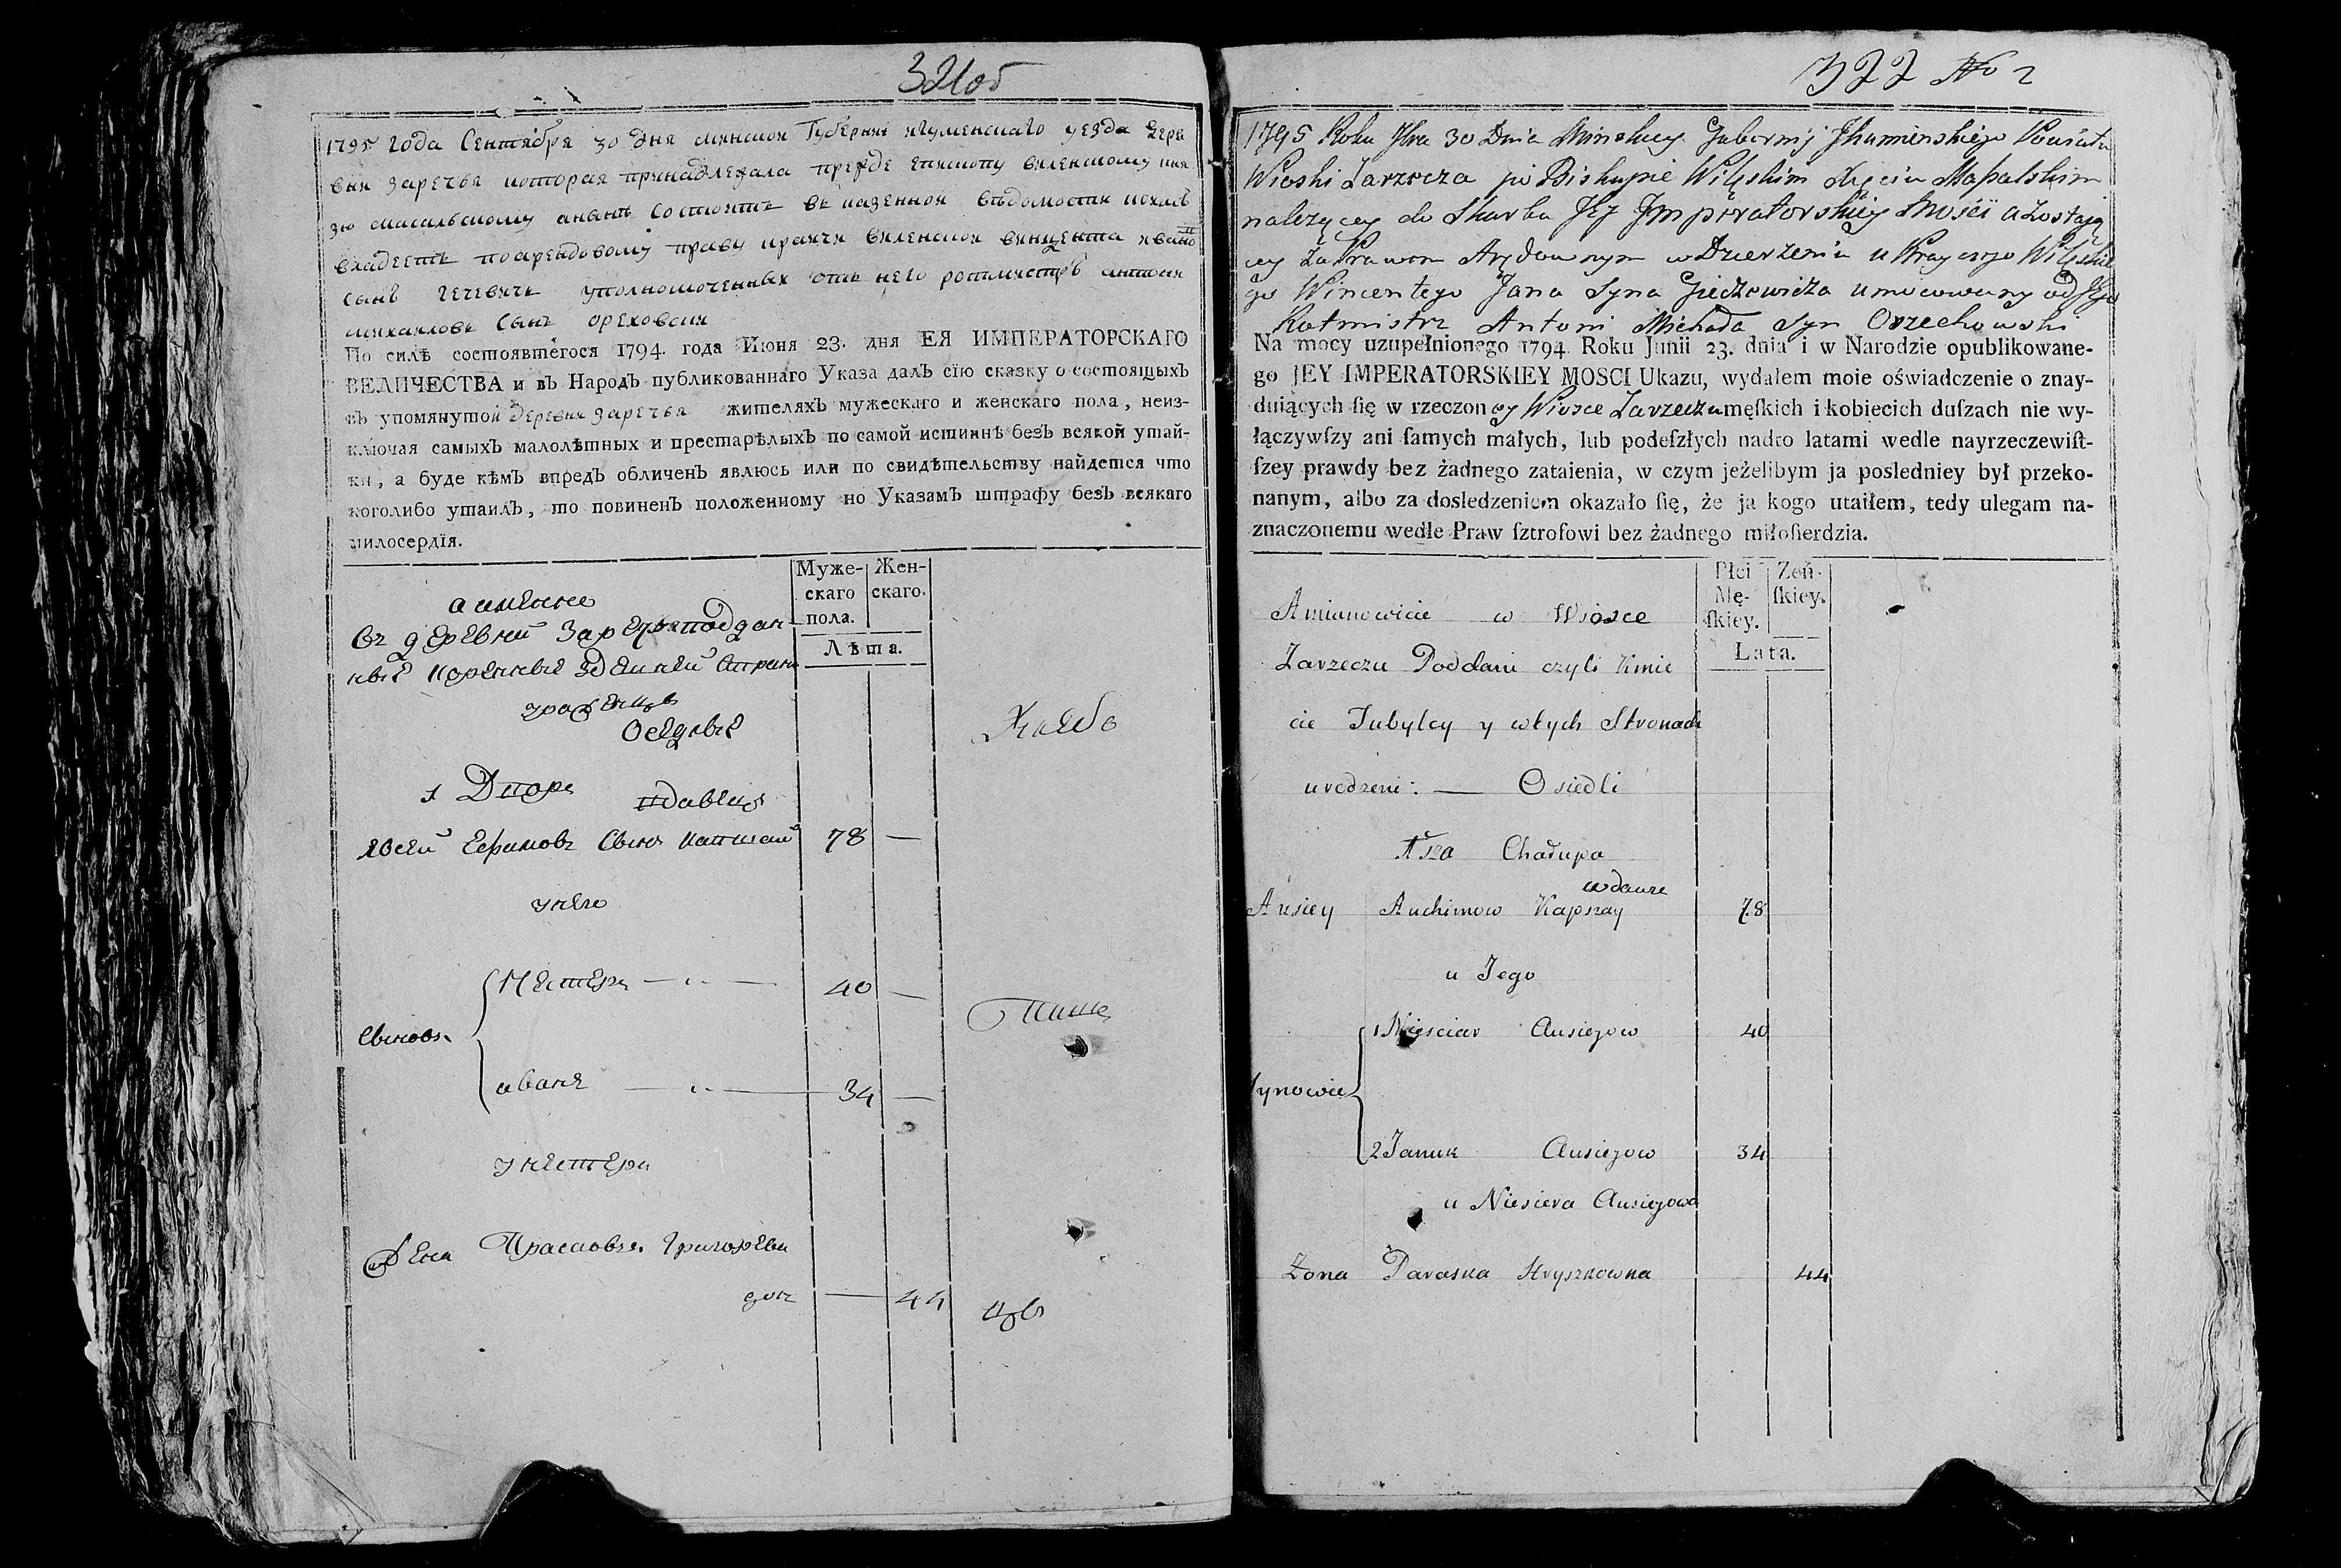 321об
1795 года Сентября 30 дня минской Губернии игуменскаго уезда дере
вни заречья которая принадлежала прежде епископу виленскому кня
зю масальскому а состоитъ въ казенной ведомости
владеетъ поарендовому праву виленской винцента ивано
сынъ гечевичь уполномоченныхъ отъ него ротмистръ антони
михаиловъ сынъ ореховски
По силѣ состоявшегося 1794. года Июня 23. дня ЕЯ ИМПЕРАТОРСКАГО
ВЕЛИЧЕСТВА и въ Народъ публикованнаго Указа далъ сїю сказку о состоящыхъ
въ упомянутой деревни заречья жителяхъ мужескаго и женскаго пола, неиз-
ключая самыхъ малолѣтныхъ и престарѣлыхъ по самой истиннѣ безъ всякой утай-
ки, а буде кѣмъ впредъ обличенъ явлюсь или по свидѣтельству найдется что
коголибо утаилъ, то повиненъ положенному по Указамъ штрафу безъ всякаго
милосердїя.
Муже-
скаго
пола.
Жен-
скаго.
Лѣта.
а имено
въ деревни Заречья поддан
ные коренные здешней стран
Оседлые
1 Дворъ вдавецъ
явсей Ефимовъ сынъ капшай 78 —
у него
сыновъ
нестеръ — 40 —
иванъ — 34 —
у нестера
жена Прасковья Григорьева
дочь — 44
322 No 2
1795 Roku 30 Dnia Minskiey Gubernij Jhumienskiego Powiatu
Wioski Zarzecza po Biskupie Wileńskim Xięciu Masalskim
należącey do Skarbu Jey Jmperatorskiey Mosci a zostaią
cey za Prawem Arędownym w Dzierżeniu u Krayczego Wileńskie
go Wincentego Jana Syna Gieczewicza umocowany od Jego
Rotmistrz Antoni Michała Syn Orzechowski
Na mocy uzupełnionego 1794 Roku Junii 23. dnia i w Narodzie opublikowane-
go JEY IMPERATORSKIEY MOSCI Ukazu, wydałem moie oświadczenie o znay-
duiących ſię w rzeczoney Wiosce Zarzeczu męſkich i kobiecich duſzach nie wy-
łączywſzy ani ſamych małych, lub podeſzłych nadto latami wedle nayrzeczewiſt-
ſzey prawdy bez żadnego zataienia, w czym jeżelibym ja posledniey był przeko-
nanym, albo za dosledzeniem okazało ſię, że ja kogo utaiłem, tedy ulegam na-
znaczonemu wedle Praw ſztrofowi bez żadnego miłoſierdzia.
Płci
Mę-
ſkiey.
Zeń-
ſkiey.
Lata.
Amianowicie w Wiosce
Zarzeczu Poddani czyli Kmie
cie Tubylcy y w tych Stronach
urodzeni: — Osiedli
1sza Chałupa
wdowiec
Ausiey Auchimow Kapszay 78
u Jego
Synowie
1 Niesciar Ausiejow 40
2 Januk Ausiejow 34
u Niesciera Ausiejowa
Żona Paraska Hryszkowna 44